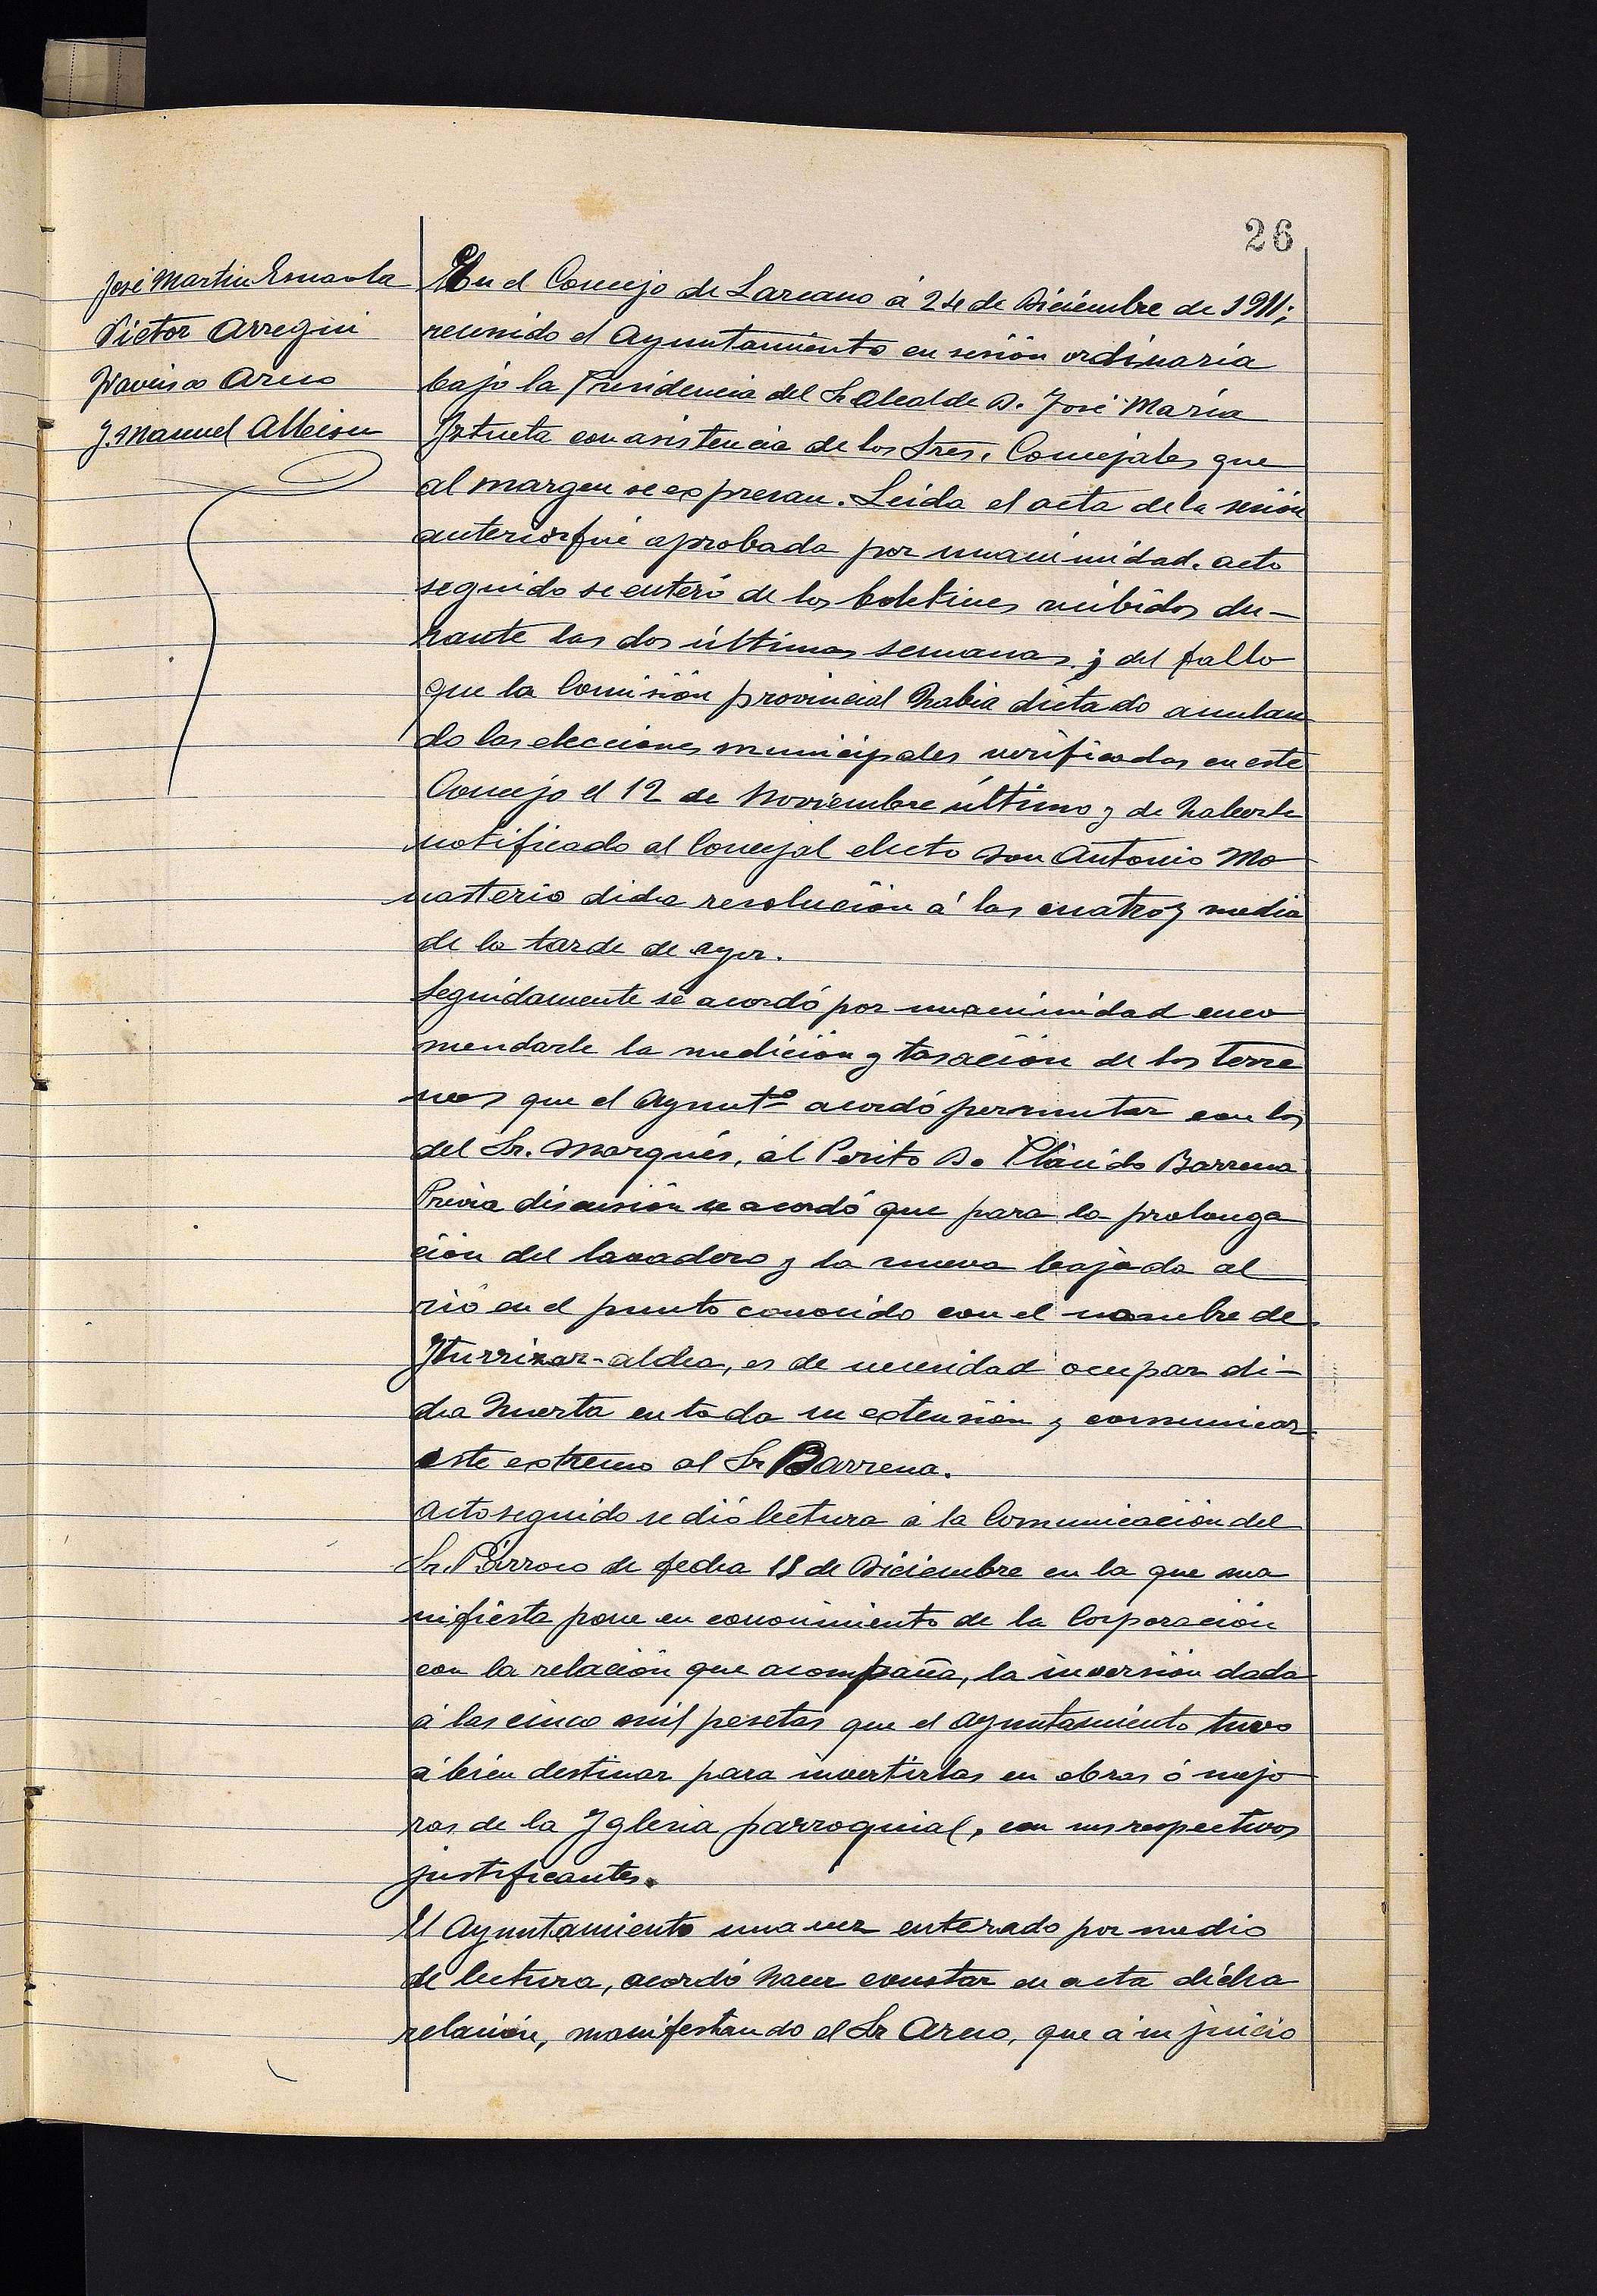 26
José Martin Esnaola
Victor Arregui
Francisco Arcus
J. Manuel Albisu
En el Concejo de Lazcano á 24 de Diciembre de 1911;
reunido el Ayuntamiento en sesión ordinaria
bajo la Presidencia del Sr Alcalde D. José María
Iztueta con asistencia de los Sres. Concejales que
al margen se expresan. Leida el acta de la sesión
anterior fué aprobada por unanimidad. acto
seguido se enteró de los boletines recibidos du-
rante las dos últimas semanas y del fallo
que la Comisión provincial habia dictado anulan
do las elecciones municipales verificadas en este
Concejo el 12 de Noviembre último y de haberle
notificado al Concejal electo Don Antonio Mo
nasterio dicha resolución á las cuatro y media
de la tarde de ayer.
Seguidamente se acordó por unanimidad enco
mendarle la medición y tasación de los terre
nos que el Ayuntº acordó permutar con los
del Sr. Marqués, al Perito D. Plácido Barrena
Previa discusión se acordó que para la prolonga
ción del lavadero y la nueva bajada al
rió en el punto conocido con el nombre de
Iturrizar-aldea, es de necesidad ocupar di-
cha huerta en toda su extensión y comunicar
este extremo al Sr Barrena.
Acto seguido se dió lectura á la Comunicación del
Sr. Párroco de fecha 18 de Diciembre en la que ma
nifiesta pone en conocimiento de la Corporación
con la relación que acompaña, la inversión dada
á las cinco mil pesetas que el Ayuntamiento tuvo
á bien destinar para invertirlas en obras ó mejo
ras de la Iglesia parroquial, con sus respectivos
justificantes.
El Ayuntamiento una vez enterado por medio
de lectura, acordó hacer constar en acta dicha
relación, manifestando el Sr Arcus, que á su juicio